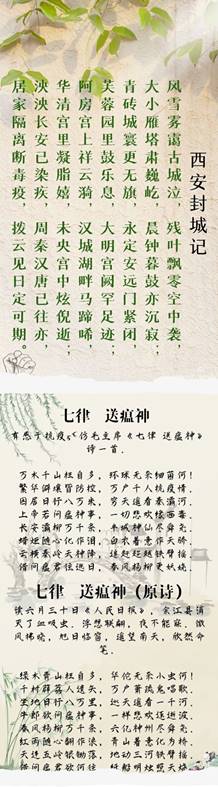 西安封城记
风雪雾霭古城泣，残叶飘零空中袭，
大小雁塔肃巍屹，晨钟暮鼓亦沉寂，
青砖城寰更无旗，永定安远门紧闭，
芙蓉园里鼓乐息，大明宫阙罕足迹，
阿房宫上祥云绮，汉城湖畔马蹄唏，
华清宫里凝脂姬，未央宫中炫倪逝，
泱泱长安已染疾，周秦汉唐已往亦，
居家隔离断毒疫，拨云见日定可期。
七律 送瘟神
有感于抗疫，仿毛主席《七律 送瘟神》
诗一首。
万木千山枉自多，环球无奈细菌何！
繁华僻壤皆防控，万户千人抗疫情。
因居日行八万米，穷天遥看春灞河。
上帝若问瘟神事，一切悲欢续西毒。
长安灞柳万千条，
借问瘟君往逝日，
七律 送瘟神（原诗）
读六月三十日《人民日报》，余江县消
灭了血吸虫，浮想联翩，夜不能寐，微
风拂晓，旭日临窗，遥望南天，欣然命
笔。
绿水青山枉自多，华佗无奈小虫何！
千村薜荔人遗矢，万户萧疏鬼唱歌。
坐地日行八万里，巡天遥看一千河。
牛郎欲问瘟神事，一样悲欢逐逝波。
春风杨柳万千条，六亿神州尽舜尧。
红雨随心翻作浪，青山着意化为桥。
天连五岭银锄落，地动三河铁臂摇。
借问瘟君欲何往，纸船明烛照天烧。